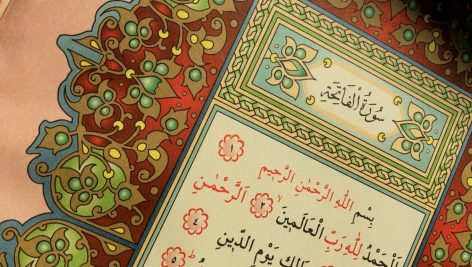 سُورَةُ الْفَاتِحَةِ
بِسْمِ اللهِ الرَّحْمٰنِ الرَّحِيمِ ١
اَلْحَمْدُ لِلهِ رَبِّ الْعَالَمِينَ ٢ اَلرَّحْمٰنِ
مَالِكِ يَوْمِ الدِّينِ ٤
٥